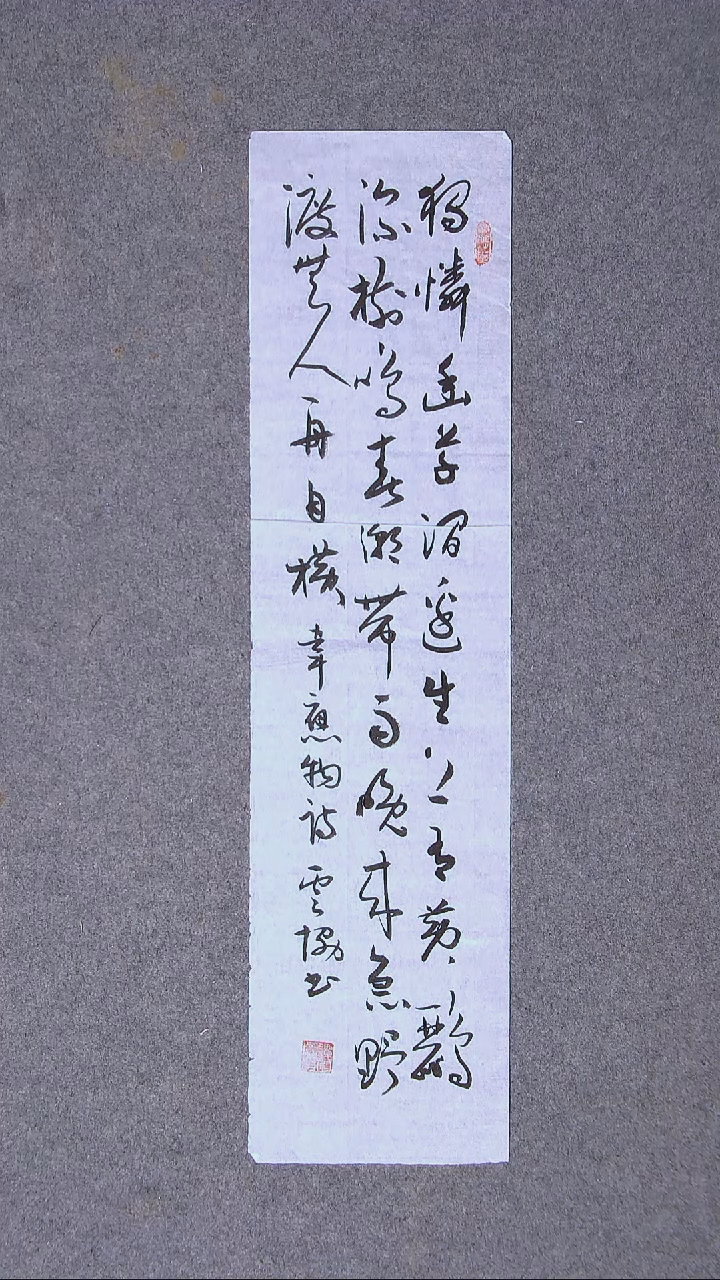 獨憐幽草澗邊生上有黄鸝
深樹鳴春潮帶雨晚來急野
渡無人舟自橫 韋應物詩 雲協書